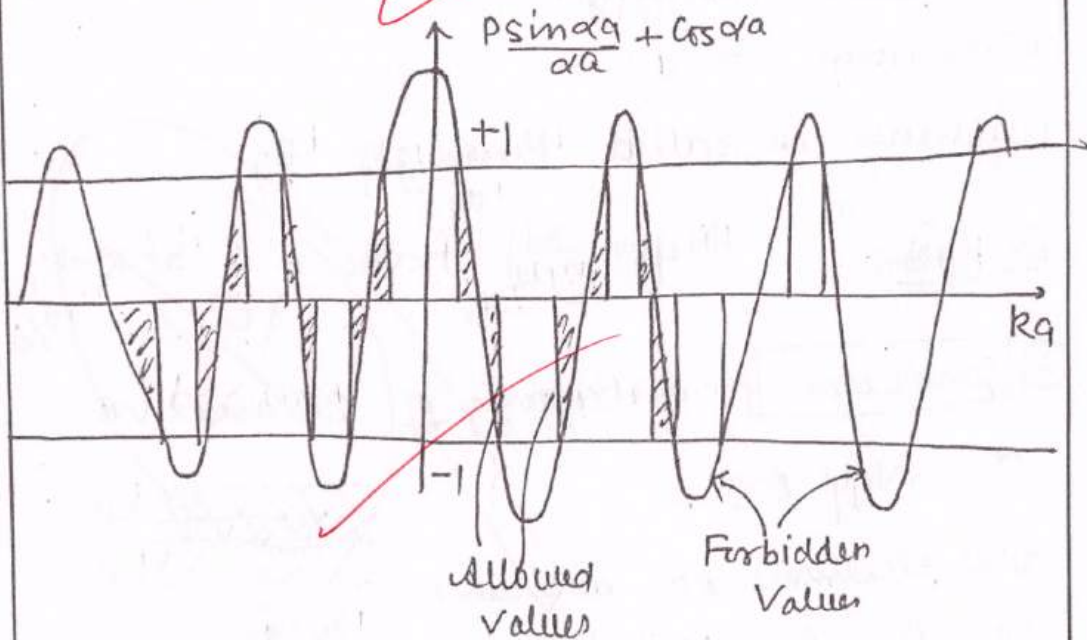 P sinαa / αa + Cosαa
+1
ka
-1
Allowed
Values
Forbidden
Values